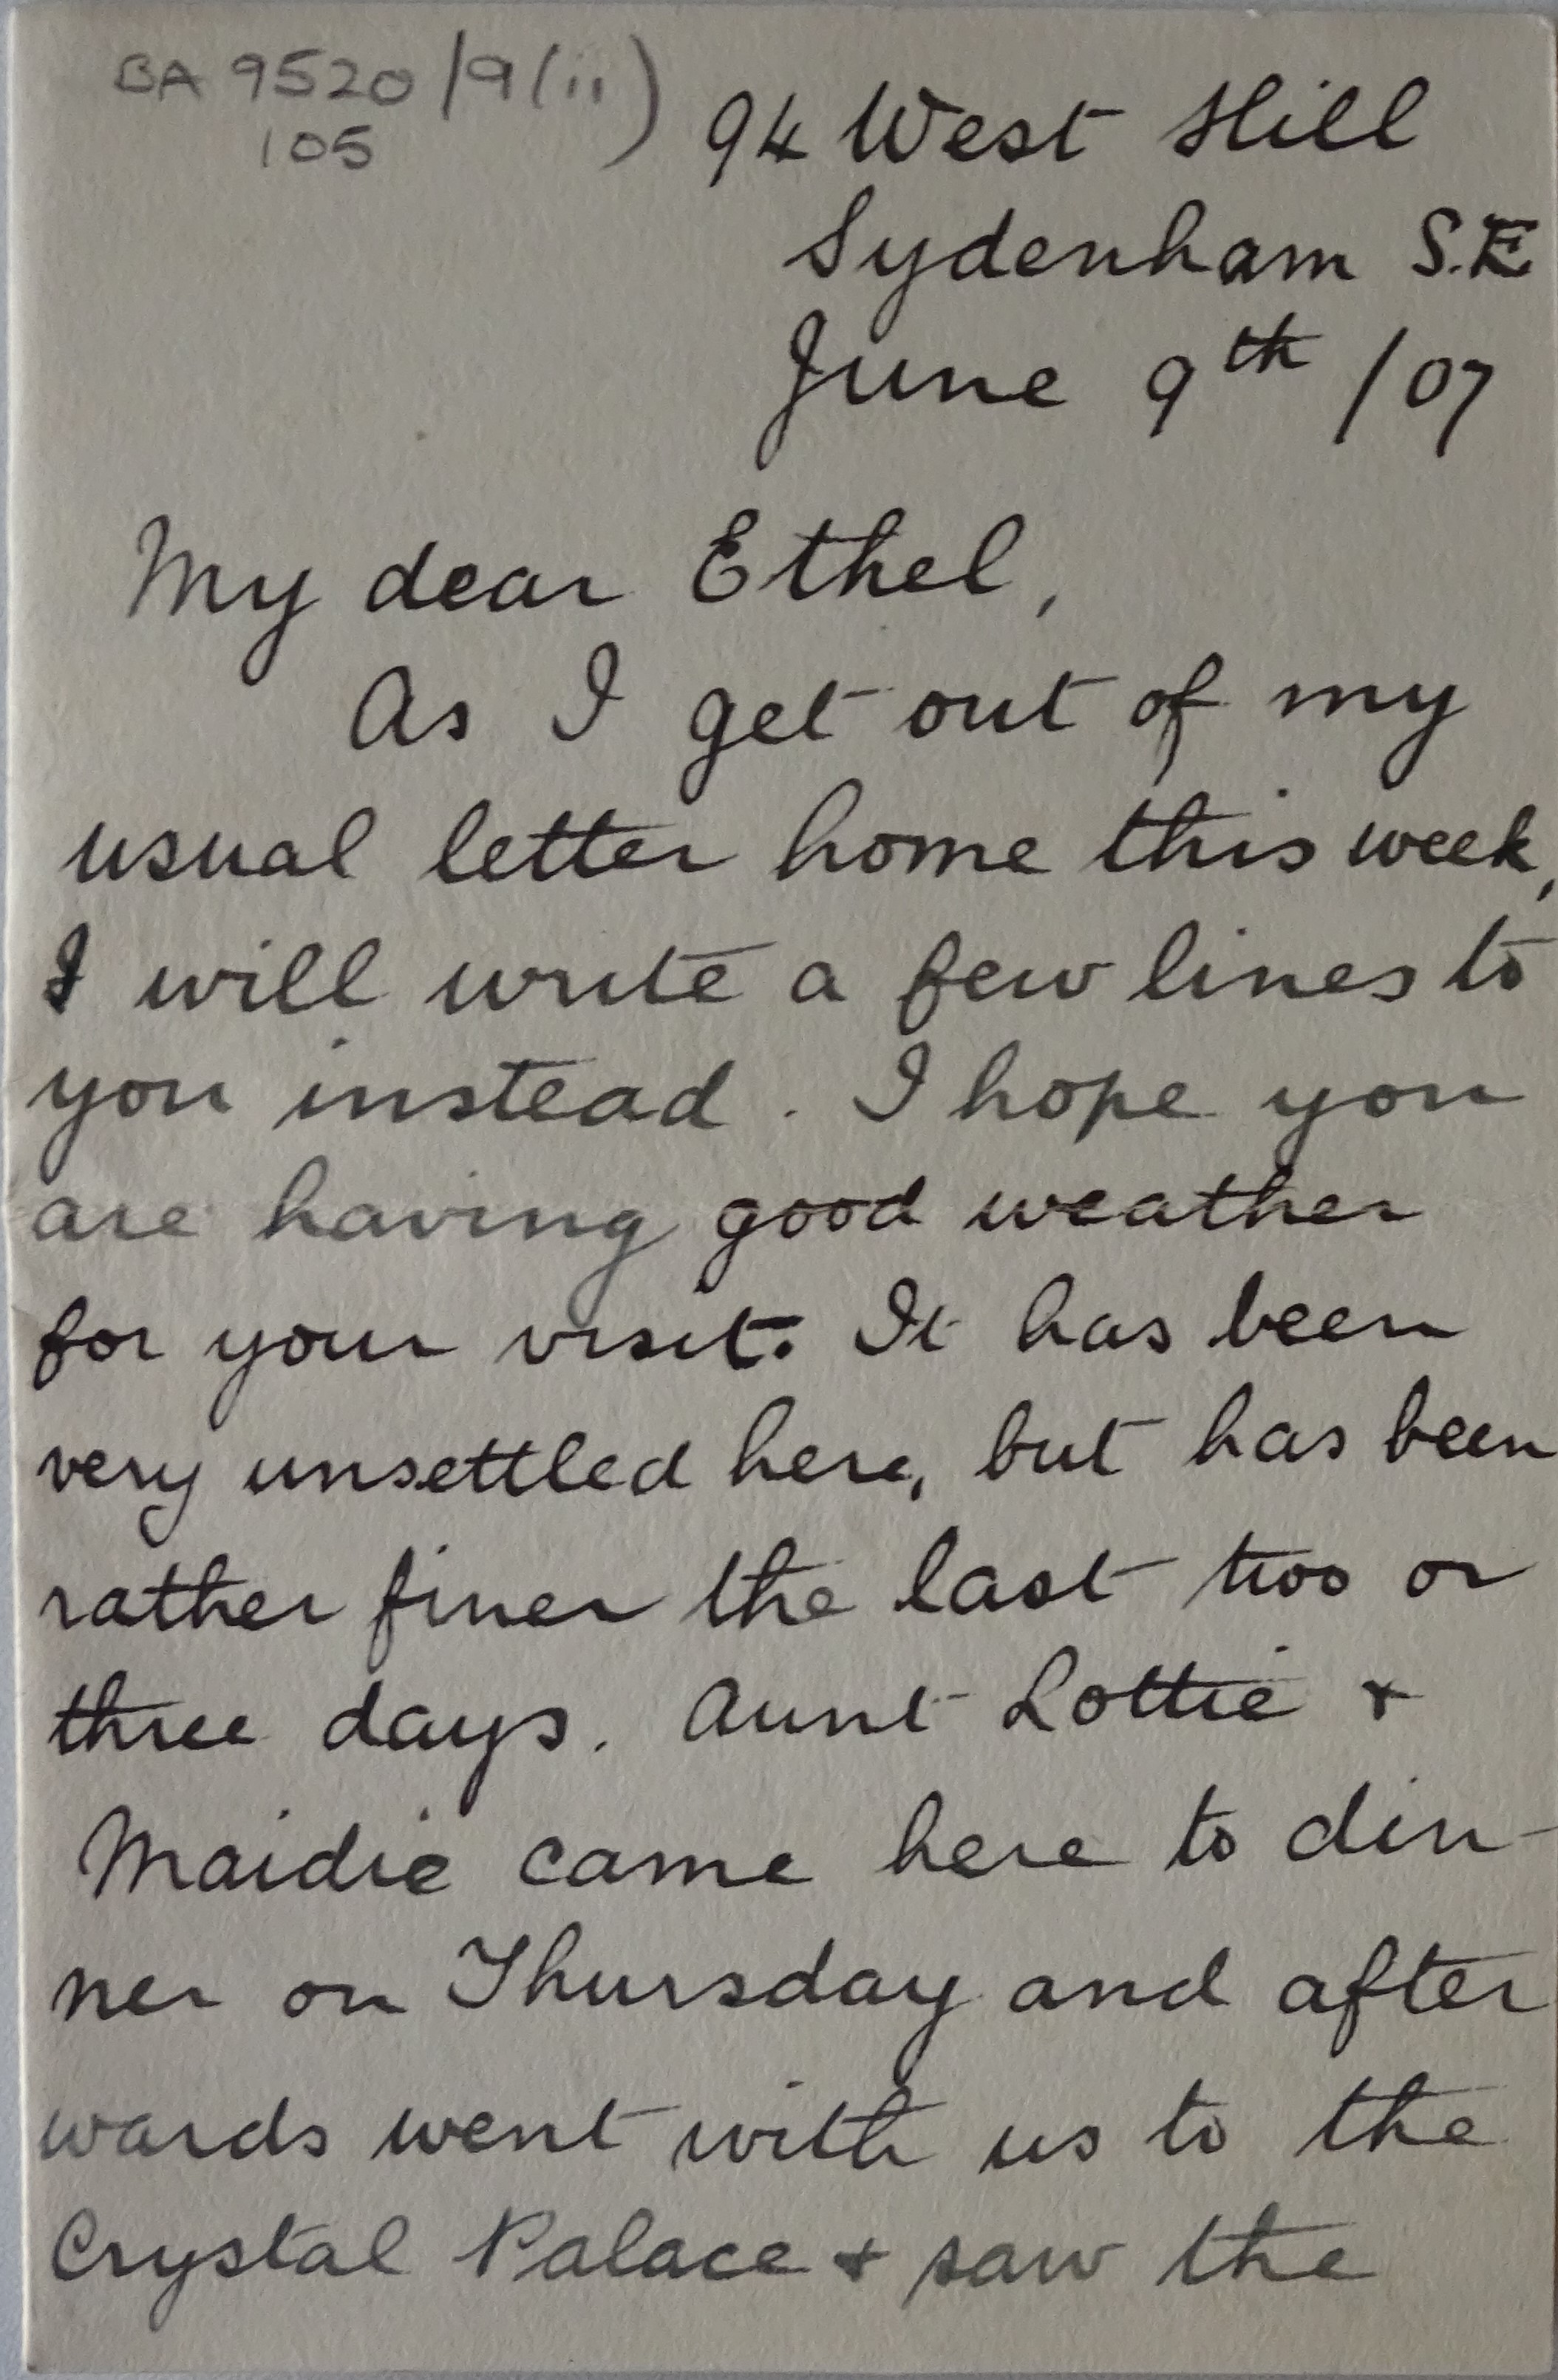 BA 9520/9(ii)
105
94 West Hill
Sydenham S.E
June 9th /07
My dear Ethel,
As I get out of my
usual letter home this week,
I will write a few lines to
you instead. I hope you
are having good weather
for your visit. It has been
very unsettled here, but has been
rather finer the last two or
three days. Aunt Lottie +
Maidie came here to din-
ner on Thursday and after
wards went with us to the
Crystal Palace + saw the